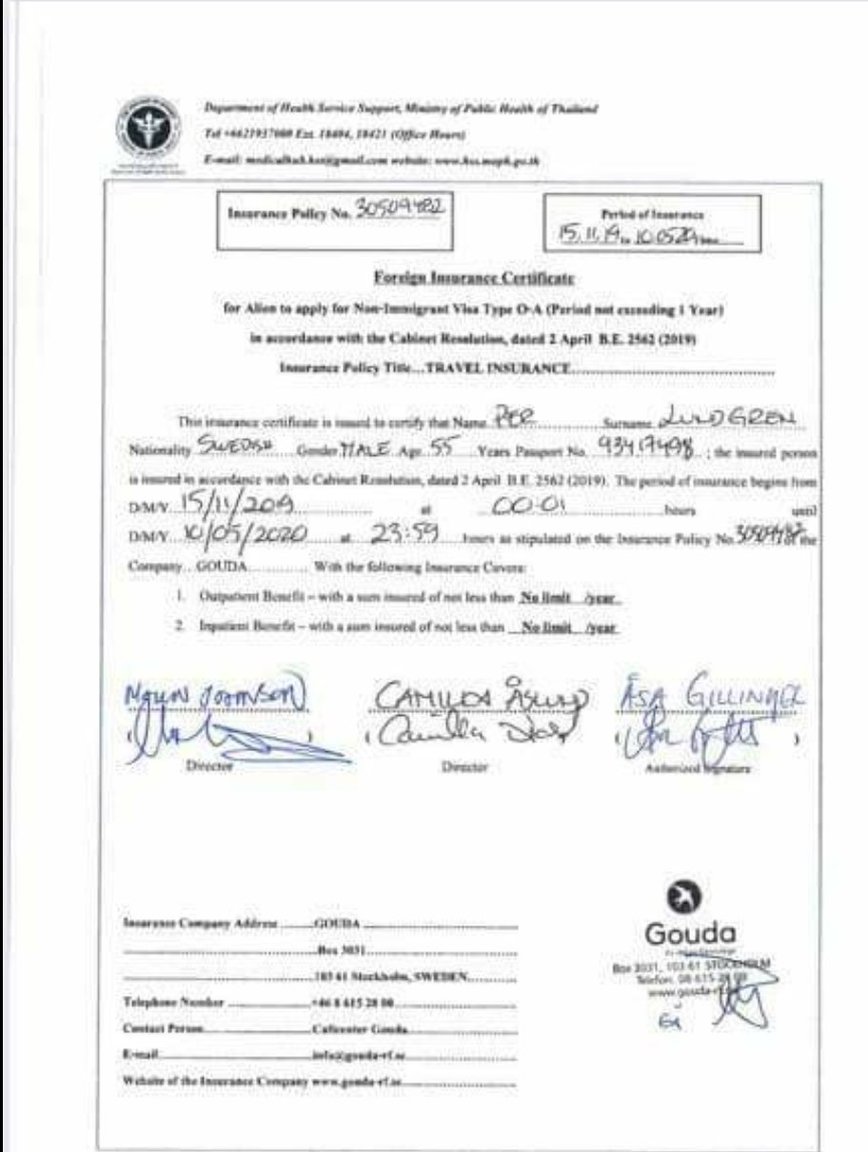 Department of Health Service Support, Ministry of Public Health of Thailand
Tel +6621937000 Ext. 18404, 18421 (Office Hours)
E-mail: medicalhub.hss@gmail.com website: www.hss.moph.go.th
Insurance Policy No. 30509482
Period of Insurance
15.11.19 to 10.0520
Foreign Insurance Certificate
for Alien to apply for Non-Immigrant Visa Type O-A (Period not exceeding 1 Year)
in accordance with the Cabinet Resolution, dated 2 April B.E. 2562 (2019)
Insurance Policy Title...TRAVEL INSURANCE
This insurance certificate is issued to certify that Name PER Surname LUNDGREN
Nationality SWEDISH Gender MALE Age 55 Years Passport No. 93417498 ; the insured person
is insured in accordance with the Cabinet Resolution, dated 2 April B.E. 2562 (2019). The period of insurance begins from
D/M/Y 15/11/2019 at 00.01 hours until
D/M/Y 10/05/2020 at 23:59 hours as stipulated on the Insurance Policy No. 30509482 of the
Company GOUDA With the following Insurance Covers:
1. Outpatient Benefit – with a sum insured of not less than No limit /year
2. Inpatient Benefit – with a sum insured of not less than No limit /year
CAMILLA ÅSA
Director
Director
Authorized Signature
Insurance Company Address GOUDA
Box 3031
103 61 Stockholm, SWEDEN
Telephone Number +46 8 615 28 00
Contact Person Callcenter Gouda
E-mail info@gouda-rf.se
Website of the Insurance Company www.gouda-rf.se
Gouda
Box 3031, 103 61 STOCKHOLM
Telefon: 08-615 28 00
www.gouda-rf.se